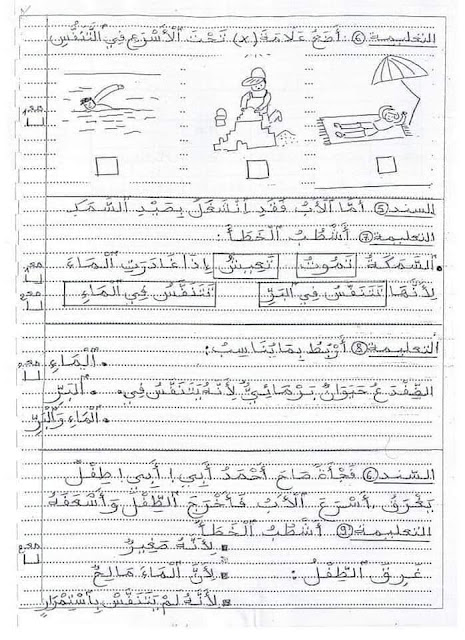 التعليمة ⑥: أَضَعُ عَلَامَةَ (x) تَحْتَ الْأَسْرَعِ فِي التَّنَفُّسِ
السند ⑤ أَمَّا الْأَبُ فَقَدِ انْشَغَلَ بِصَيْدِ السَّمَكِ
التعليمة ⑦: أَشْطُبُ الْخَطَأَ:
السَّمَكَةُ تَمُوتُ تَعِيشُ إِذَا غَادَرَتِ الْمَاءَ
لِأَنَّهَا تَتَنَفَّسُ فِي الْبَرِّ تَتَنَفَّسُ فِي الْمَاءِ
التعليمة ⑧ أَرْبِطُ بِمَا يُنَاسِبُ:
الْمَاءِ
الضِّفْدَعُ حَيَوَانٌ بَرْمَائِيٌّ لِأَنَّهُ يَتَنَفَّسُ فِي. الْبَرِّ
الْمَاءِ وَالْبَرِّ
السند ⑥ فَجْأَةً صَاحَ أَحْمَدُ أَبِي! أَبِي! طِفْلٌ
يَغْرَقُ. أَسْرَعَ الْأَبُ فَأَخْرَجَ الطِّفْلَ وَأَسْعَفَهُ
التعليمة ⑨ أَشْطُبُ الْخَطَأَ
لِأَنَّهُ صَغِيرٌ
غَرِقَ الطِّفْلُ: لِأَنَّ الْمَاءَ مَالِحٌ
لِأَنَّهُ لَمْ يَتَنَفَّسْ بِاسْتِمْرَارٍ